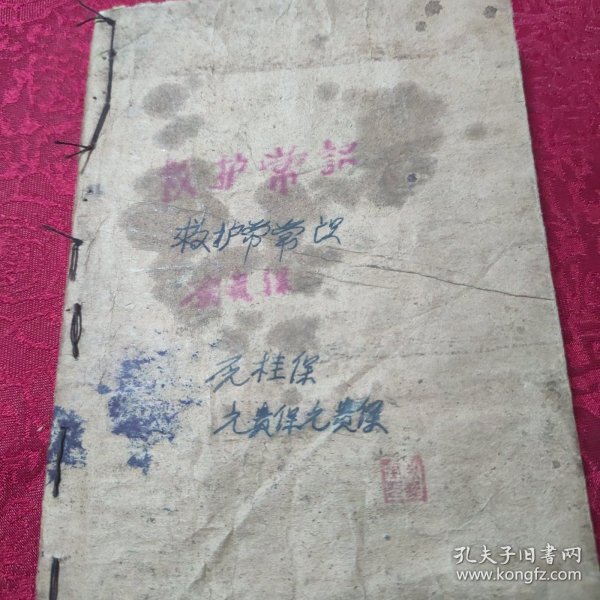 救护常识
救护常常识
元桂保
元贵保元贵保
孔夫子旧书网
www.kongfz.com